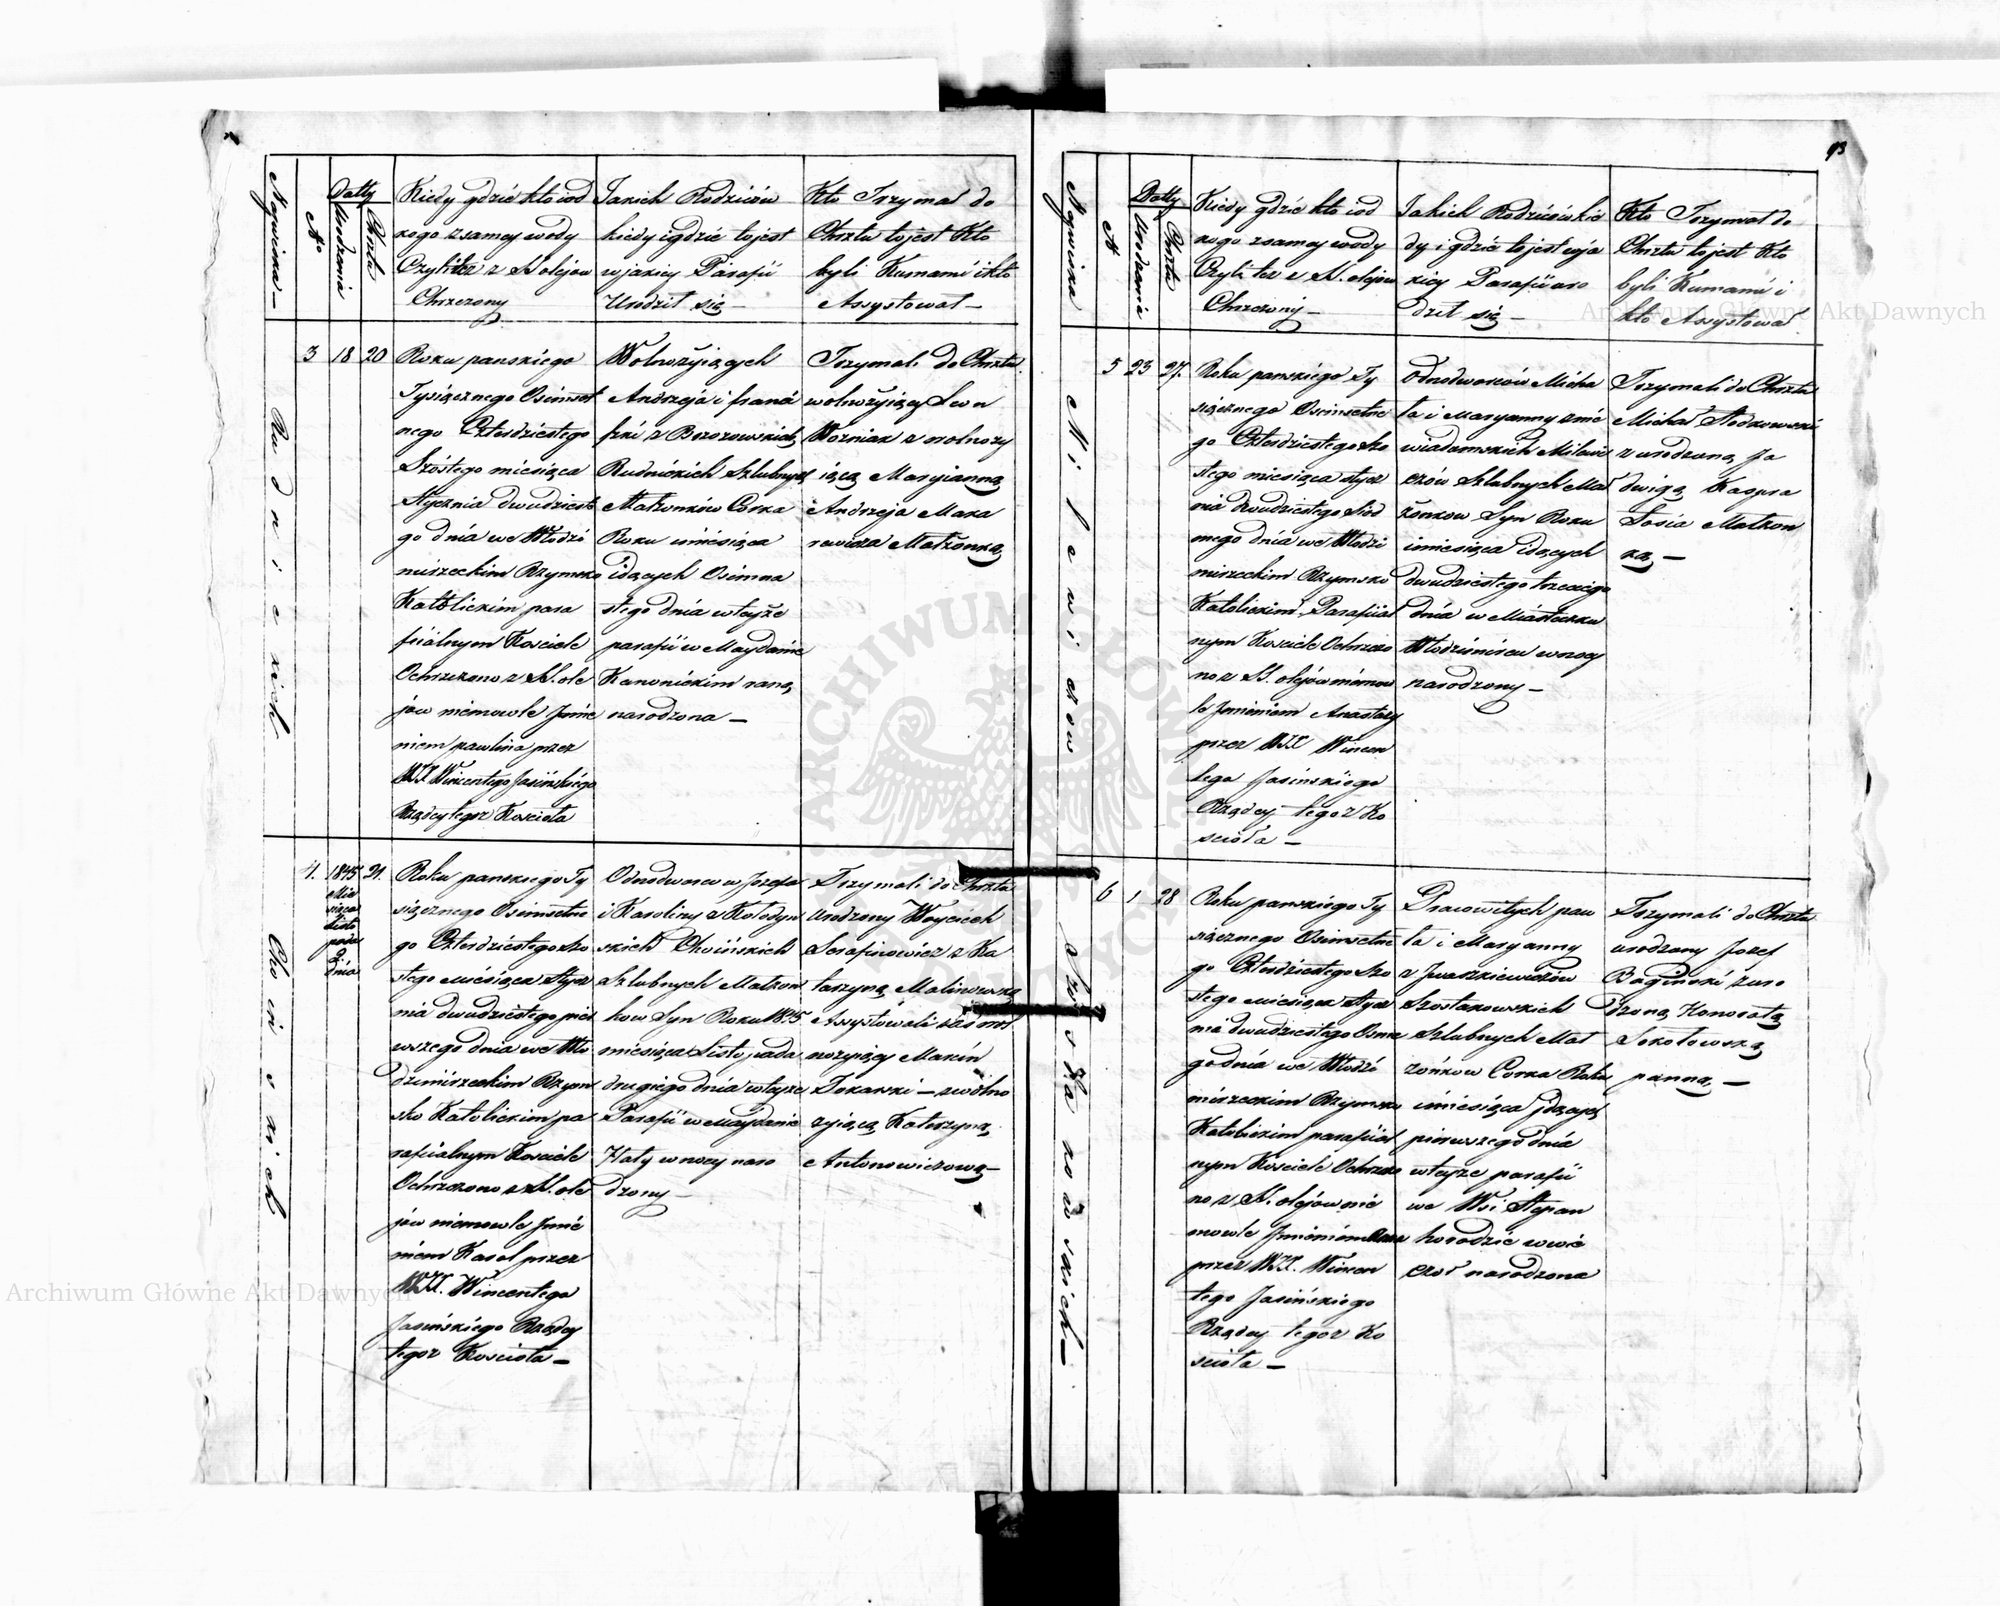 93
Nazwiska
No
Datty
Urodzenia
Chrztu
Kiedy gdzie kto i od
kogo z samej wody
Czyli też z S. olejów
Chrzczony
Jakich Rodziców
kiedy i gdzie to jest
w jakiej Parafii
Urodził się
Kto Trzymał do
Chrztu to jest Kto
byli Kumami i kto
Assystował
Rudnickich
3
18
20
Roku panskiego
Tysiącznego Osimset
nego Czterdziestego
Szóstego miesiąca
Stycznia dwudziest
go dnia we Włodzi
mirzeckim Rzymsko
Katolickim para
fialnym Kosciele
Ochrzczono z S. ole
jów niemowle Jmie
niem pawlina przez
WJX Wincentego Jasińskiego
Rządcy tegoż Kościoła
Wolnożyiących
Andrzeja i franci
szki z
Rudnickich Szlubnych
Małżonków Corka
Roku i miesiąca
idących Osimna
stego dnia w tejże
parafii w Majdanie
Kanonickim rano
narodzona —
Trzymali do Chrztu
wolnożyiący Leon
Wozniak z wolnoży
iącą Maryianną
Andrzeja Maka
rewicza Małżonką
Choińskich
4.
1845
Mie
siąca
Listo
pada
2
dnia
21.
Roku panskiego Ty
siącznego Osimsetne
go Czterdziestego Szo
stego miesiąca Stycz
nia dwudziestego pier
wszego dnia we Wło
dzimirzeckim Rzym
sko Katolickim pa
rafialnym Kosciele
Ochrzczono z S. ole
jów niemowle Jmie
niem Karol przez
WJX. Wincentego
Jasińskiego Rządcy
tegoż Kościoła —
Odnodworców Jozefa
i Karoliny z Kołodyn
skich Choińskich
Szlubnych Małżon
ków Syn Roku 1845
miesiąca Listopada
drugiego dnia w tejże
Parafii w Majdanie
Haty w nocy naro
dzony —
Trzymali do Chrztu
Urodzony Woyciech
Serafinowicz z Ka
tarzyną Malinowską
Assystowali
nożyiący Marcin
Tokarski — z wolno
żyiącą Katerzyną
Antonowiczową —
Nazwiska
N
Datty
Urodzenia
Chrztu
Kiedy gdzie kto i od
kogo z samej wody
Czyli też z S. olejów
Chrzczony —
Jakich Rodziców kie
dy i gdzie to jest w ja
kiej Parafii uro
dził się —
Kto Trzymał do
Chrztu to jest Kto
byli Kumami i
kto Assystował
Milewiczów
5
23
27.
Roku panskiego Ty
siącznego Osimsetne
go Czterdziestego Szo
stego miesiąca stycz
nia dwudziestego siód
mego dnia we Włodzi
mirzeckim Rzymsko
Katolickim Parafial
nym Kosciele Ochrzczo
no z S. olejów niemow
le Jmieniem Anastazy
przez WJX Wincen
tego Jasińskiego
Rządcy tegoż Ko
scioła —
Odnodworców Micha
ła i Maryanny
Szlubnych Mał
żonkow Syn Roku
i miesiąca idących
dwudziestego trzeciego
dnia w Miasteczku
Włodzimircu w nocy
narodzony —
Trzymali do Chrztu
Michał
z urodzoną Ja
dwigą Kaspra
Małżon
ką —
Szostakowskich —
6
1
28
Roku panskiego Ty
siącznego Osimsetne
go Czterdziestego Szo
stego miesiąca Stycz
nia dwudziestego Osme
go dnia we Włodzi
mirzeckim Rzymsko
Katolickim parafial
nym Kosciele Ochrzczo
no z S. olejów nie
mowle Jmieniem
przez WJX. Wincen
tego Jasińskiego
Rządcy tegoż Ko
scioła —
Pracowitych paw
ła i Maryanny
z Jwaszkiewiczów
Szostakowskich
Szlubnych Mał
żonkow Corka Roku
i miesiąca idących
pierwszego dnia
w tejże parafii
we Wsi Stepan
horodzie w wie
czor narodzona
Trzymali do Chrztu
urodzony Jozef
Bagiński z uro
dzoną Honoratą
Sokołowską
panną —
Archiwum Główne Akt Dawnych
Archiwum Główne Akt Dawnych
ARCHIWUM GŁÓWNE AKT DAWNYCH